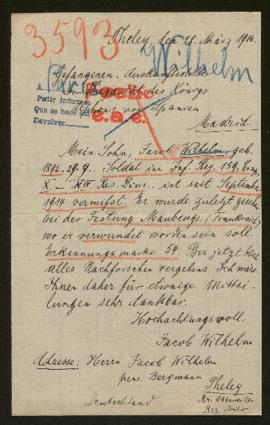 3593
Theley, den 28. März 1916.
Wilhelm
Gefangenen-Auskunftstelle
Pedir informes
Que se hace
Devolver
e.a.c.
Madrid
Mein Sohn, Jacob Wilhelm geb.
1892. 29.9. Soldat im Inf. Reg. 159.
X. – XIV Res. Div. ist seit September
1914 vermißt. Er wurde zuletzt gesehen
bei der Festung Maubeuge (Frankreich)
wo er verwundet worden sein soll.
Erkennungsmarke 54. Bis jetzt ist
alles Nachforschen vergebens. Ich wäre
Ihnen daher für etwaige Mittei-
lungen sehr dankbar.
Hochachtungsvoll
Jacob Wilhelm
Adresse: Herrn Jacob Wilhelm
pens. Bergmann
Theley
Kr. Ottweiler
Deutschland
Bez. Trier